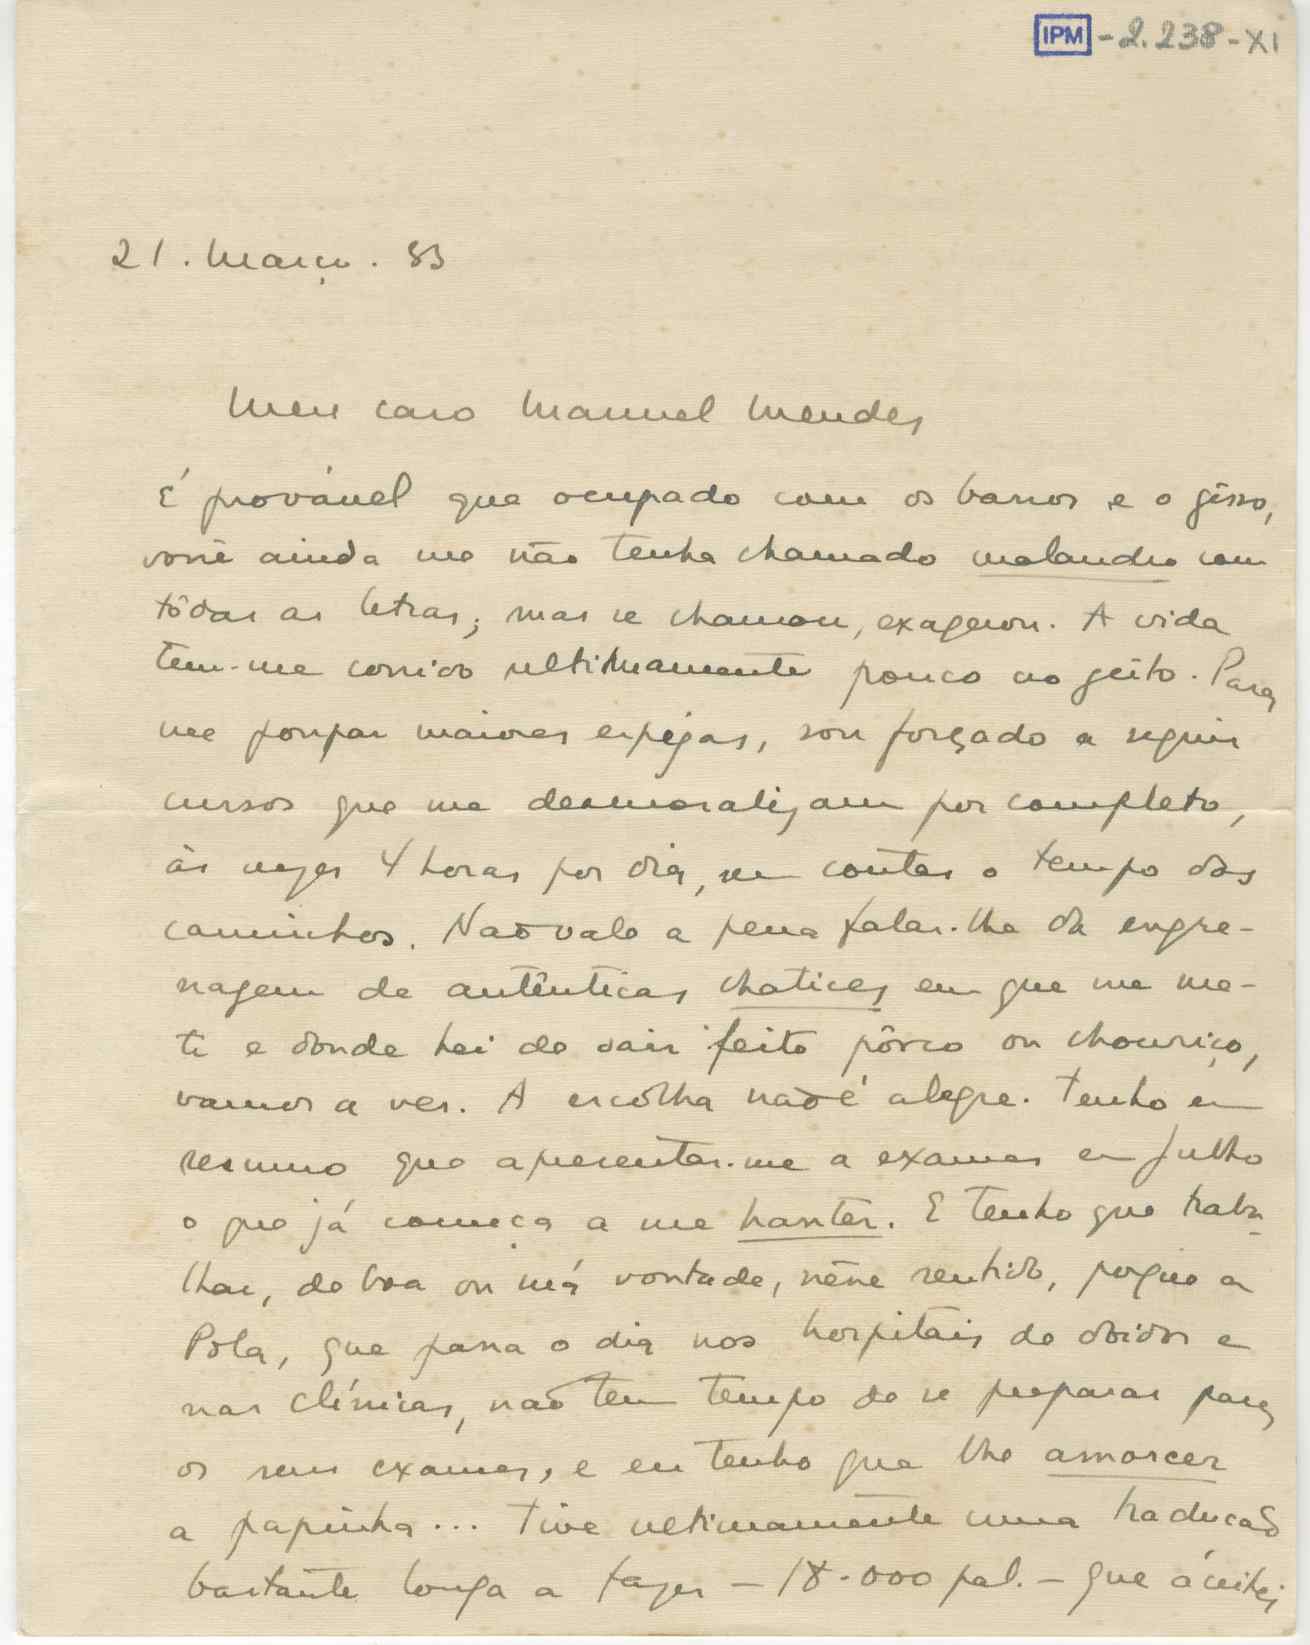 IPM - 2.238 - XI
21. Março. 33
Meu caro Manuel Mendes
É provável que ocupado com os barros e o gêsso,
você ainda me não tenha chamado malandro com
tôdas as letras; mas se chamou, exagerou. A vida
tem-me corrido ultimamente pouco ao geito. Para
me poupar maiores espigas, sou forçado a seguir
cursos que me desmoralizam por completo,
às vezes 4 horas por dia, sem contar o tempo dos
caminhos. Não vale a pena falar-lhe da engre-
nagem de autênticas chatices em que me me-
ti e donde hei de sair feito pôrco ou chouriço,
vamos a ver. A escôlha não é alegre. Tenho em
resumo que apresentar-me a exames em Julho
o que já começa a me hanter. E tenho que traba-
lhar, de boa ou má vontade, nêsse sentido, porque a
Pola, que passa o dia nos hospitais de doidos e
nas clínicas, não tem tempo de se preparar para
os seus exames, e eu tenho que lhe amorcer
a papinha... Tive ultimamente uma tradução
bastante longa a fazer — 18.000 pal. — que aceitei